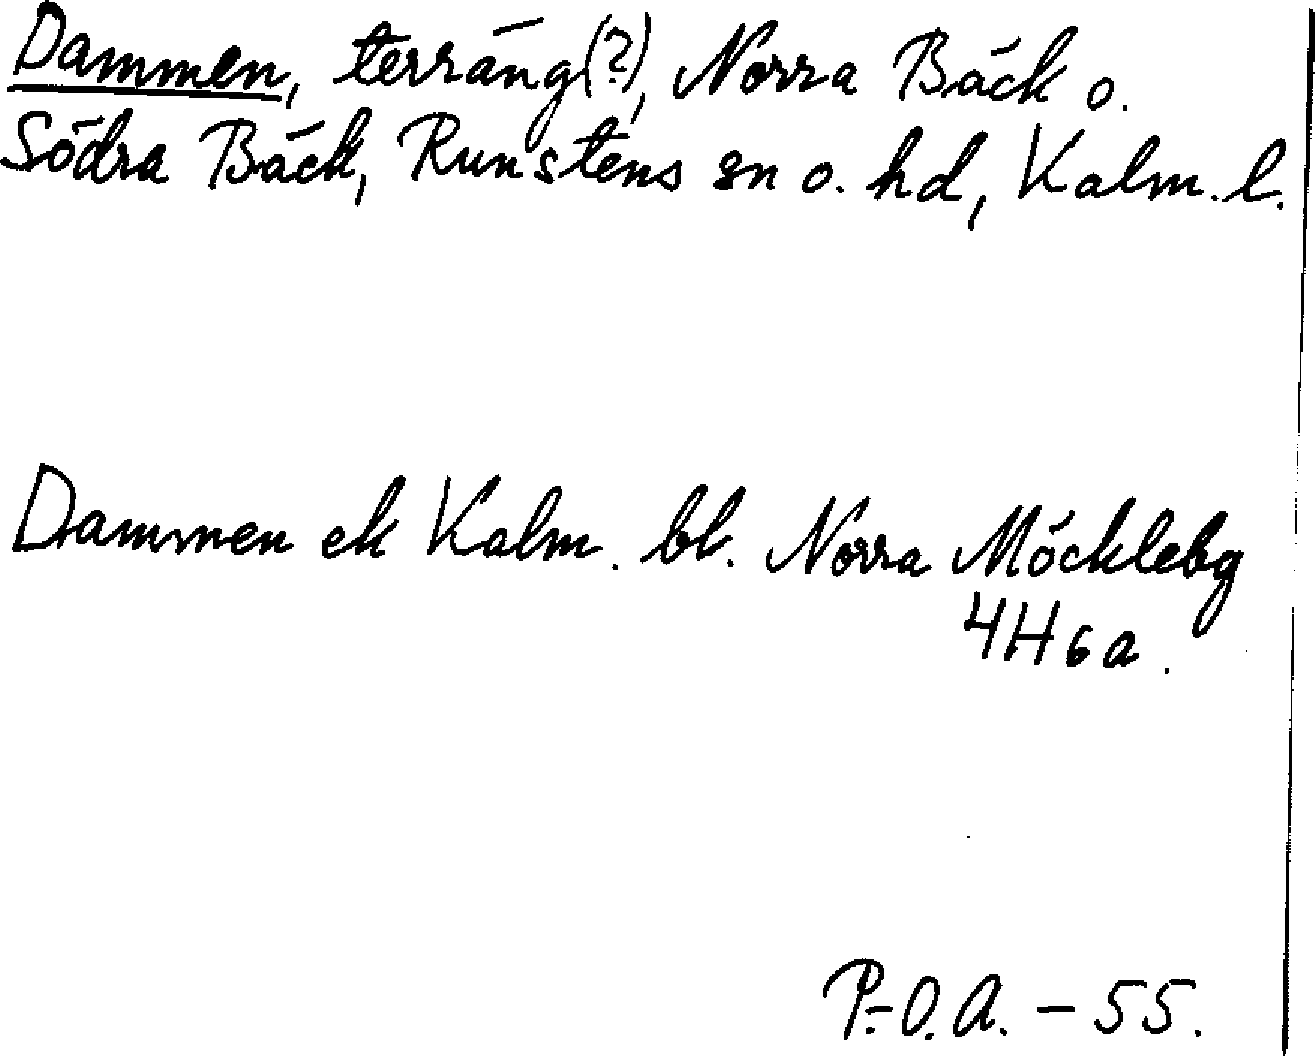 Dammen, terräng(?), Norra Bäck o.
Södra Bäck, Runstens sn o. hd, Kalm. l.
Dammen ek Kalm. bl. Norra Möcklebg
4H6a.
P.-O.A. - 55.